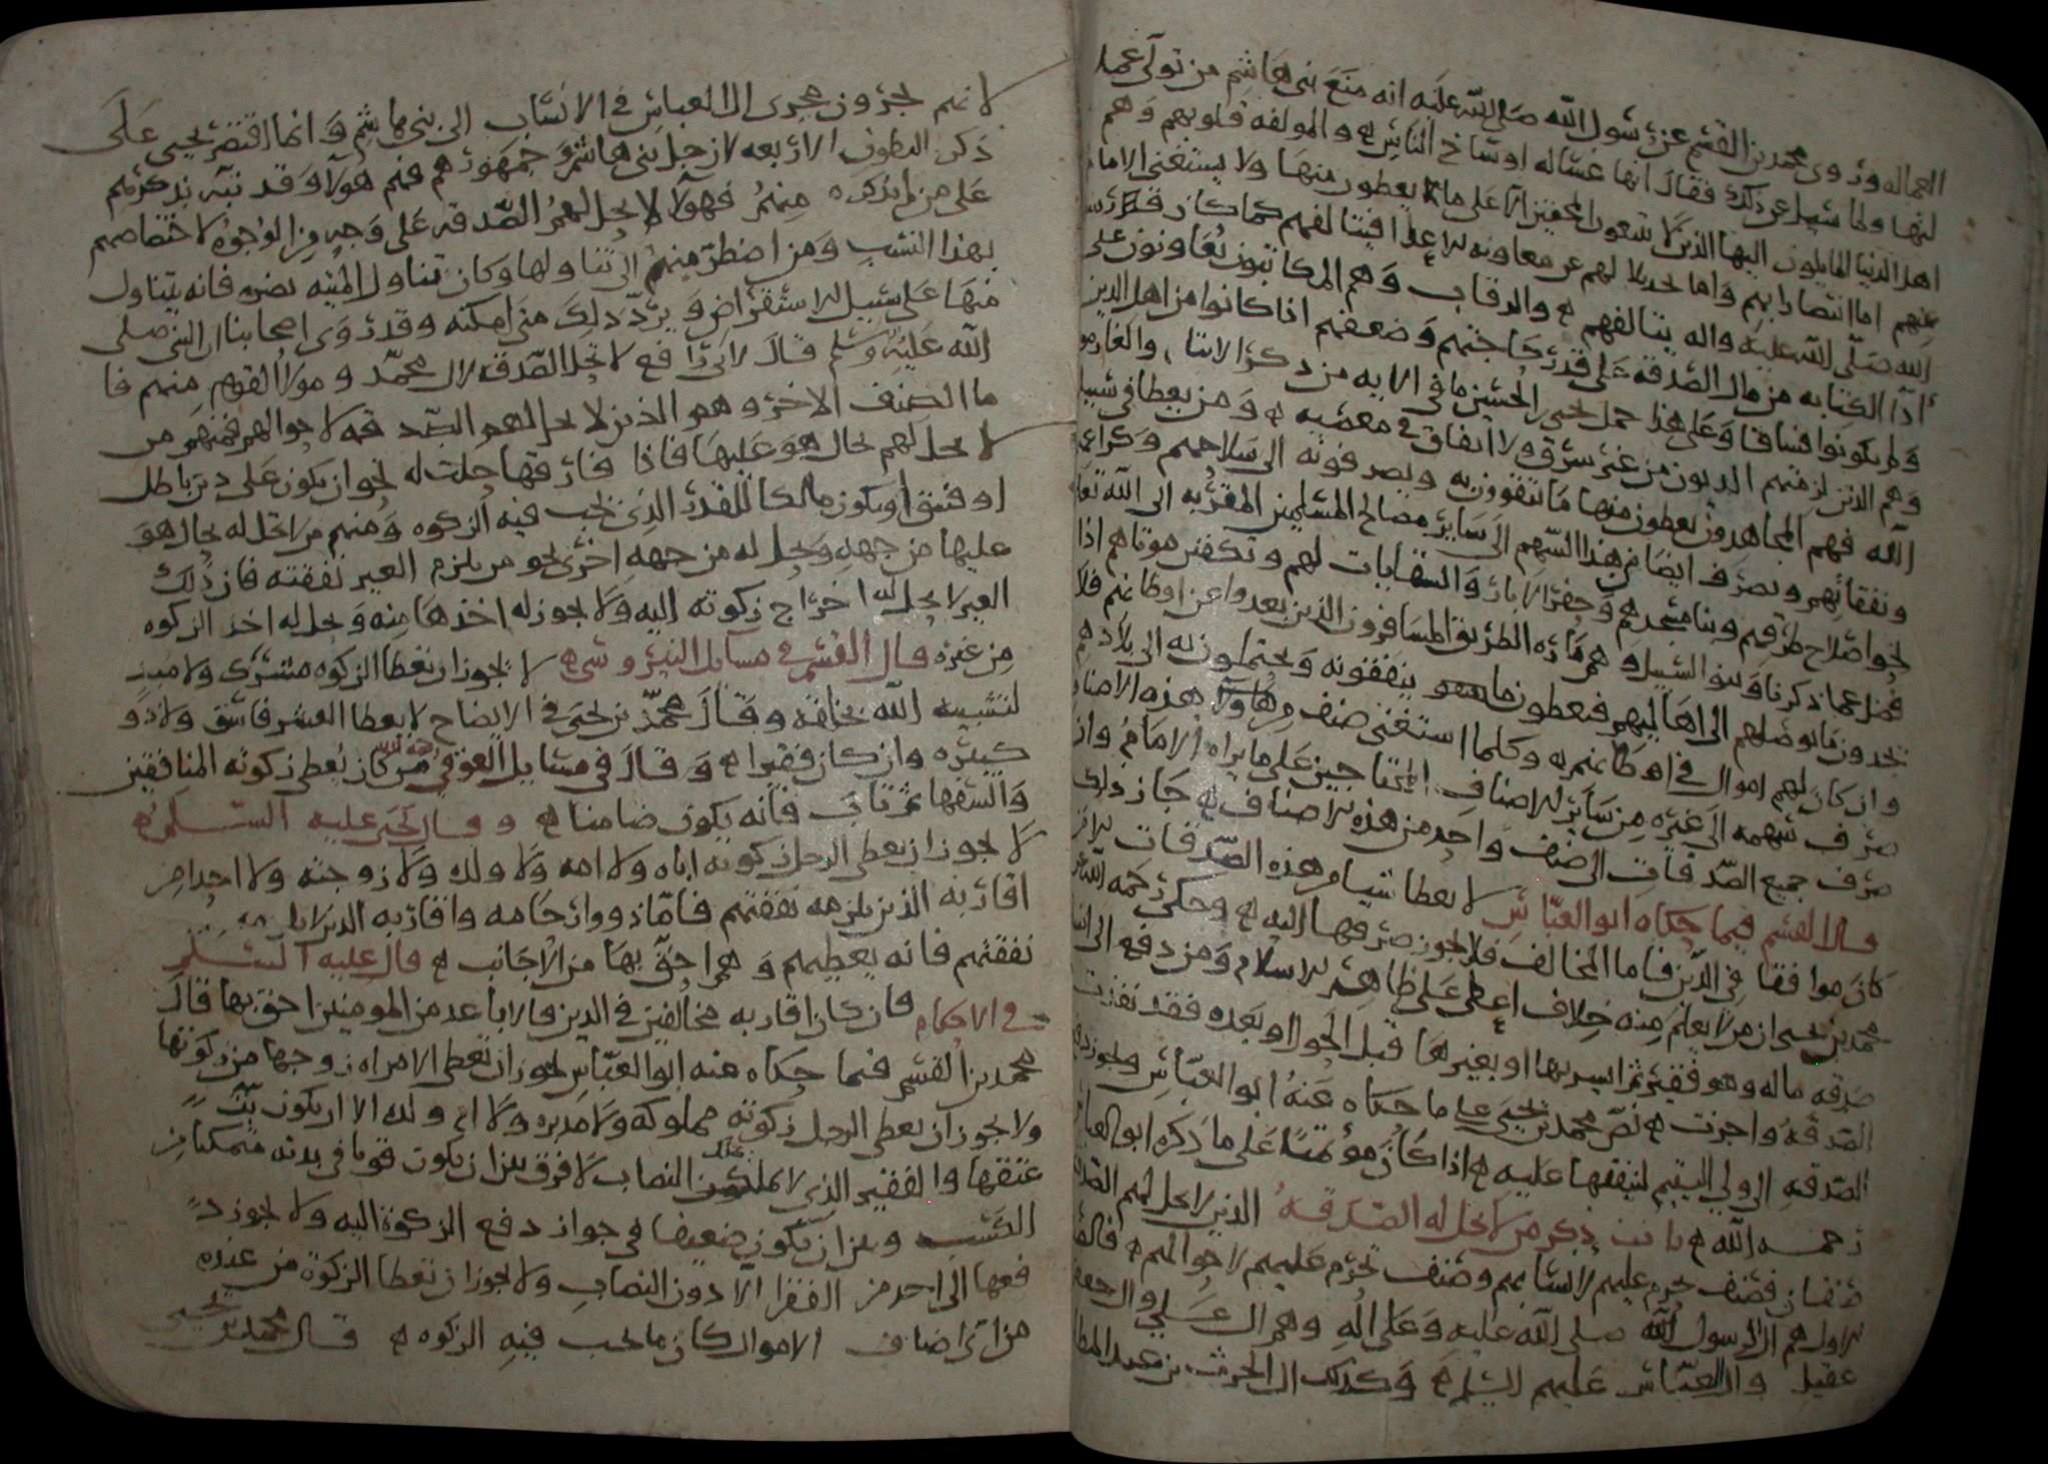 العماله وروى محمد بن القسم عن رسول الله صلى الله عليه انه منع بني هاشم من تولى عمل
لنها ولما سيل عن ذلك فقال انها غساله اوساخ الناس ه والمولفه قلوبهم وهم
اهل الدنيا المايلون اليها الذين لا يتبعون المحقين الا على ما يعطون منها ولا يستغنى الامام
عنهم اما انتصارا بهم واما تخذيلا لهم عن معاونه الاعدا فيتالفهم كما كان رسول
الله صلى الله عليه واله يتالفهم ه والرقاب وهم المكاتبون يعاونون على
ادا الكتابه من مال الصدقه على قدر حاجتهم وضعفهم اذا كانوا من اهل الدين
ولم يكونوا فساقا وعلى هذا حمل يحيى بن الحسين ما في الايه من ذكر الايتا، والغارمون
وهم الذين لزمتهم الديون من غير سرف ولا انفاق في معصيه ه ومن يعطا في سبيل
الله فهم المجاهدون يعطون منها ما يتقوون به ويصرفونه الى سلاحهم وكراعهم
ونفقاتهم ويصرف ايضا من هذا السهم الى ساير مصالح المسلمين المقربه الى الله تعالى
نحو اصلاح طرقهم وبنا مسجدهم وحفر الابار والسقايات لهم وتكفين موتاهم اذا
فضل عما ذكرنا وبنو السبيل وهم مارة الطريق المسافرون الذين بعدوا عن اوطانهم فلا
يجدون ما يوصلهم الى اهاليهم فيعطون ما ينفقونه ويحتملون به الى بلادهم
وان كان لهم اموال في اوطانهم ه وكلما استغنى صنف من هاولا بهذه الاصناف
صرف سهمه الى غيره من ساير الاصناف المحتاجين على ما يراه الامام وان
صرف جميع الصدقات الى صنف واحد من هذه الاصناف ه جاز ذلك
قال القسم فيما حكاه ابو العباس لا يعطا شيا من هذه الصدقات الا من
كان موافقا في الدين فاما المخالف فلا يجوز صرفها اليه ه وحكى رحمه الله عن
محمد بن يحيى ان من لا يعلم منه خلاف اعطى على ظاهر الاسلام ومن دفع الى انسان
صدقه ماله وهو فقير ثم ايسر بها او بغيرها قبل الحول او بعده فقد نفذت
الصدقه واجزت ه نص محمد بن يحيى على ما حكاه عنه ابو العباس ويجوز دفع
الصدقه الى ولي اليتيم لينفقها عليه ه اذا كان مؤتمنا على ما ذكره ابو العباس
رحمه الله ه باب ذكر من لا تحل له الصدقه الذين لا تحل لهم الصدقه
صنفان فصنف تحرم عليهم لانسابهم وصنف تحرم عليهم لاحوالهم ه فالصنف
الاول هم ال الرسول صلى الله عليه وعلى اله وهم ال علي وال جعفر
عقيل وال العباس عليهم السلم ه وكذلك ال الحرث بن عبد المطلب
لانهم يجرون مجرى ال العباس في الانساب الى بني هاشم وانما اقتصر يحيى على
ذكر البطون الاربعه لان جل بني هاشم وجمهورهم فهم هولا وقد نبه بذكرهم
على من لم يذكره منهم فهولا لا يحل لهم الصدقه على وجه من الوجوه لاختصاصهم
بهذا النسب ومن اضطر منهم الى تناولها وكان تناول الميته تضره فانه يتناول
منها على سبيل الاستقراض ويرد ذلك متى امكنه وقد روى اصحابنا ان النبي صلى
الله عليه وسلم قال لابي رافع لا تحل الصدقه لال محمد ومولا القوم منهم فا
ما الصنف الاخر وهو الذين لا تحل لهم الصدقه لاحوالهم فمنهم من
لا تحل لهم بحال هو عليها فاذا فارقها حلت له نحو ان يكون على دين باطل
او فسق او يكون مالكا للقدر الذي تجب فيه الزكوه ومنهم من تحل له بحال هو
عليها من جهه وتحل له من جهه اخرى نحو من يلزم الغير نفقته فان ذلك
الغير لا يحل له اخراج زكوته اليه ولا يجوز له اخذها منه ويحل له اخذ الزكوه
من غيره قال القسم في مسايل النيروسي ه لا يجوز ان تعطا الزكوه مشرك ولا مبد
لتشبيه الله بخلقه وقال محمد بن يحيى في الايضاح لا يعطا العشر فاسق ولا ذو
كبيره وان كان فقيرا ه وقال في مسايل العوفي من كان يعطى زكوته المنافقين
والسفها ثم تاب فانه يكون ضامنا ه وقال يحيى عليه السلم ه
لا يجوز ان يعطى الرجل زكوته اباه ولا امه ولا ولده ولا زوجته ولا احدا من
اقاربه الذين يلزمه نفقتهم فاما ذووا ارحامه واقاربه الذين لا يلزمه
نفقتهم فانه يعطيهم وهم احق بها من الاجانب ه قال عليه السلم
في الاحكام فان كان اقاربه مخالفين في الدين فالاباعد من المومنين احق بها قال
محمد بن القسم فيما حكاه عنه ابو العباس يجوز ان تعطى الامراه زوجها من زكوتها
ولا يجوز ان يعطى الرجل زكوته مملوكه ولا مدبره ولا ام ولده الا ان يكون بت
عتقها والفقير الذي لا يملك النصاب لا فرق بين ان يكون قويا في بدنه متمكنا من
التكسب وبين ان يكون ضعيفا في جواز دفع الزكوة اليه ولا يجوز د
فعها الى احد من الفقرا الا دون النصاب ولا يجوز ان تعطا الزكوة من عنده
من اي اصناف الاموال كان ما تجب فيه الزكوه ه قال محمد بن يحيى